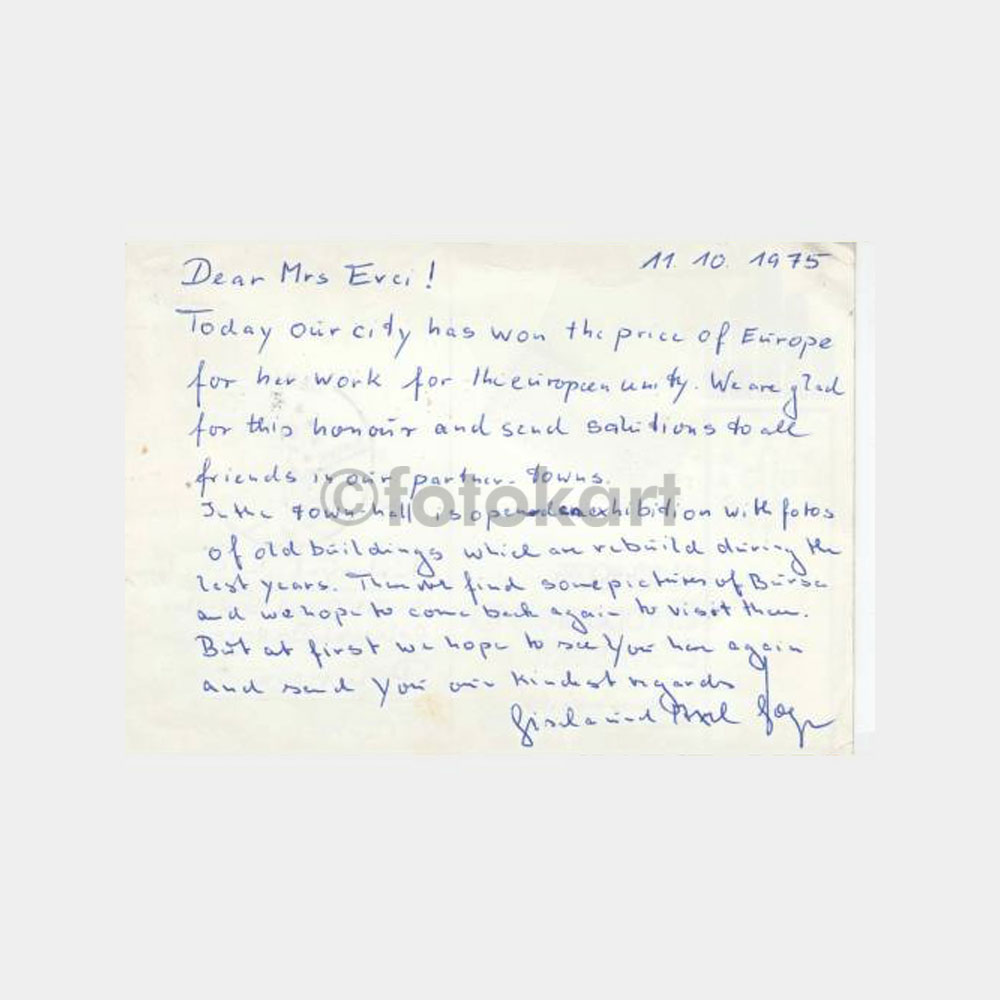 11. 10. 1975
Dear Mrs Evci!
Today our city has won the price of Europe
for her work for the european unity. We are glad
for this honour and send salutions to all
friends in our partner-towns.
In the town hall is opened an exhibidion with fotos
of old buildings which are rebuild during the
last years. There we find some pictures of Bursa
and we hope to come back again to visit them.
But at first we hope to see You here again
and send You our kindest regards
Gisela und Axel
©fotokart